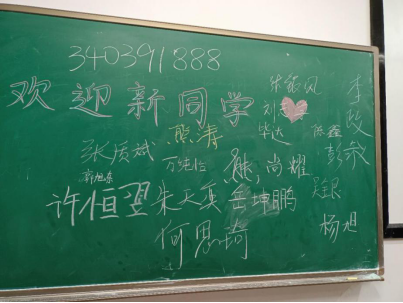 340391888
朱毅凤
欢迎新同学
刘
李政
毕达
熊涛
陈鑫
张质斌
万纯怡
彭焱
熊尚耀
郭旭东
许恒翌
朱天奕
岳坤鹏
吴银
杨旭
何思琦